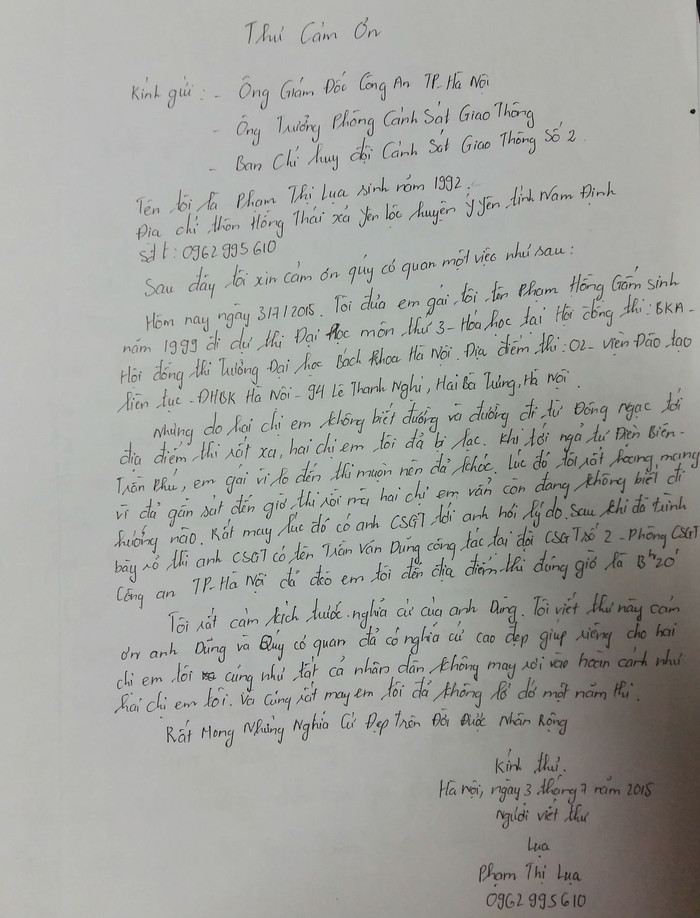 Thư Cảm Ơn
Kính gửi: - Ông Giám Đốc Công An TP. Hà Nội
- Ông Trưởng Phòng Cảnh Sát Giao Thông
- Ban Chỉ huy đội Cảnh Sát Giao Thông Số 2.
Tên tôi là Phạm Thị Lụa sinh năm 1992.
Địa chỉ thôn Hồng Thái xã Yên Lộc huyện Ý Yên tỉnh Nam Định
Sđt: 0962995610
Sau đây tôi xin cảm ơn quý cơ quan một việc như sau:
Hôm nay ngày 3/7/2015. Tôi đưa em gái tôi tên Phạm Hồng Gấm sinh
năm 1999 đi dự thi Đại học môn thứ 3 - Hóa học tại Hội đồng thi: BKA -
Hội đồng thi Trường Đại học Bách Khoa Hà Nội. Địa điểm thi: 02 - Viện Đào tạo
liên tục - ĐHBK Hà Nội - 94 Lê Thanh Nghị, Hai Bà Trưng, Hà Nội.
Nhưng do hai chị em không biết đường và đường đi từ Đông Ngạc tới
địa điểm thi rất xa, hai chị em tôi đã bị lạc. Khi tới ngã tư Điện Biên -
Trần Phú, em gái vì lo đến thi muộn nên đã khóc. Lúc đó tôi rất hoang mang
vì đã gần sát đến giờ thi rồi mà hai chị em vẫn còn đang không biết đi
hướng nào. Rất may lúc đó có anh CSGT tới anh hỏi lý do. Sau khi đã trình
bày rõ thì anh CSGT có tên Trần Văn Dũng công tác tại đội CSGT số 2 - Phòng CSGT
Công an TP. Hà Nội đã đèo em tôi đến địa điểm thi đúng giờ là 13h20'
Tôi rất cảm kích trước nghĩa cử của anh Dũng. Tôi viết thư này cảm
ơn anh Dũng và Quý cơ quan đã có nghĩa cử cao đẹp giúp riêng cho hai
chị em tôi cũng như tất cả nhân dân không may rơi vào hoàn cảnh như
hai chị em tôi. Và cũng rất may em tôi đã không lỡ dở một năm thi.
Rất Mong Những Nghĩa Cử Đẹp Trên Đời Được Nhân Rộng
Kính thư.
Hà Nội, ngày 3 tháng 7 năm 2015
Người viết thư
Lụa
Phạm Thị Lụa
0962995610